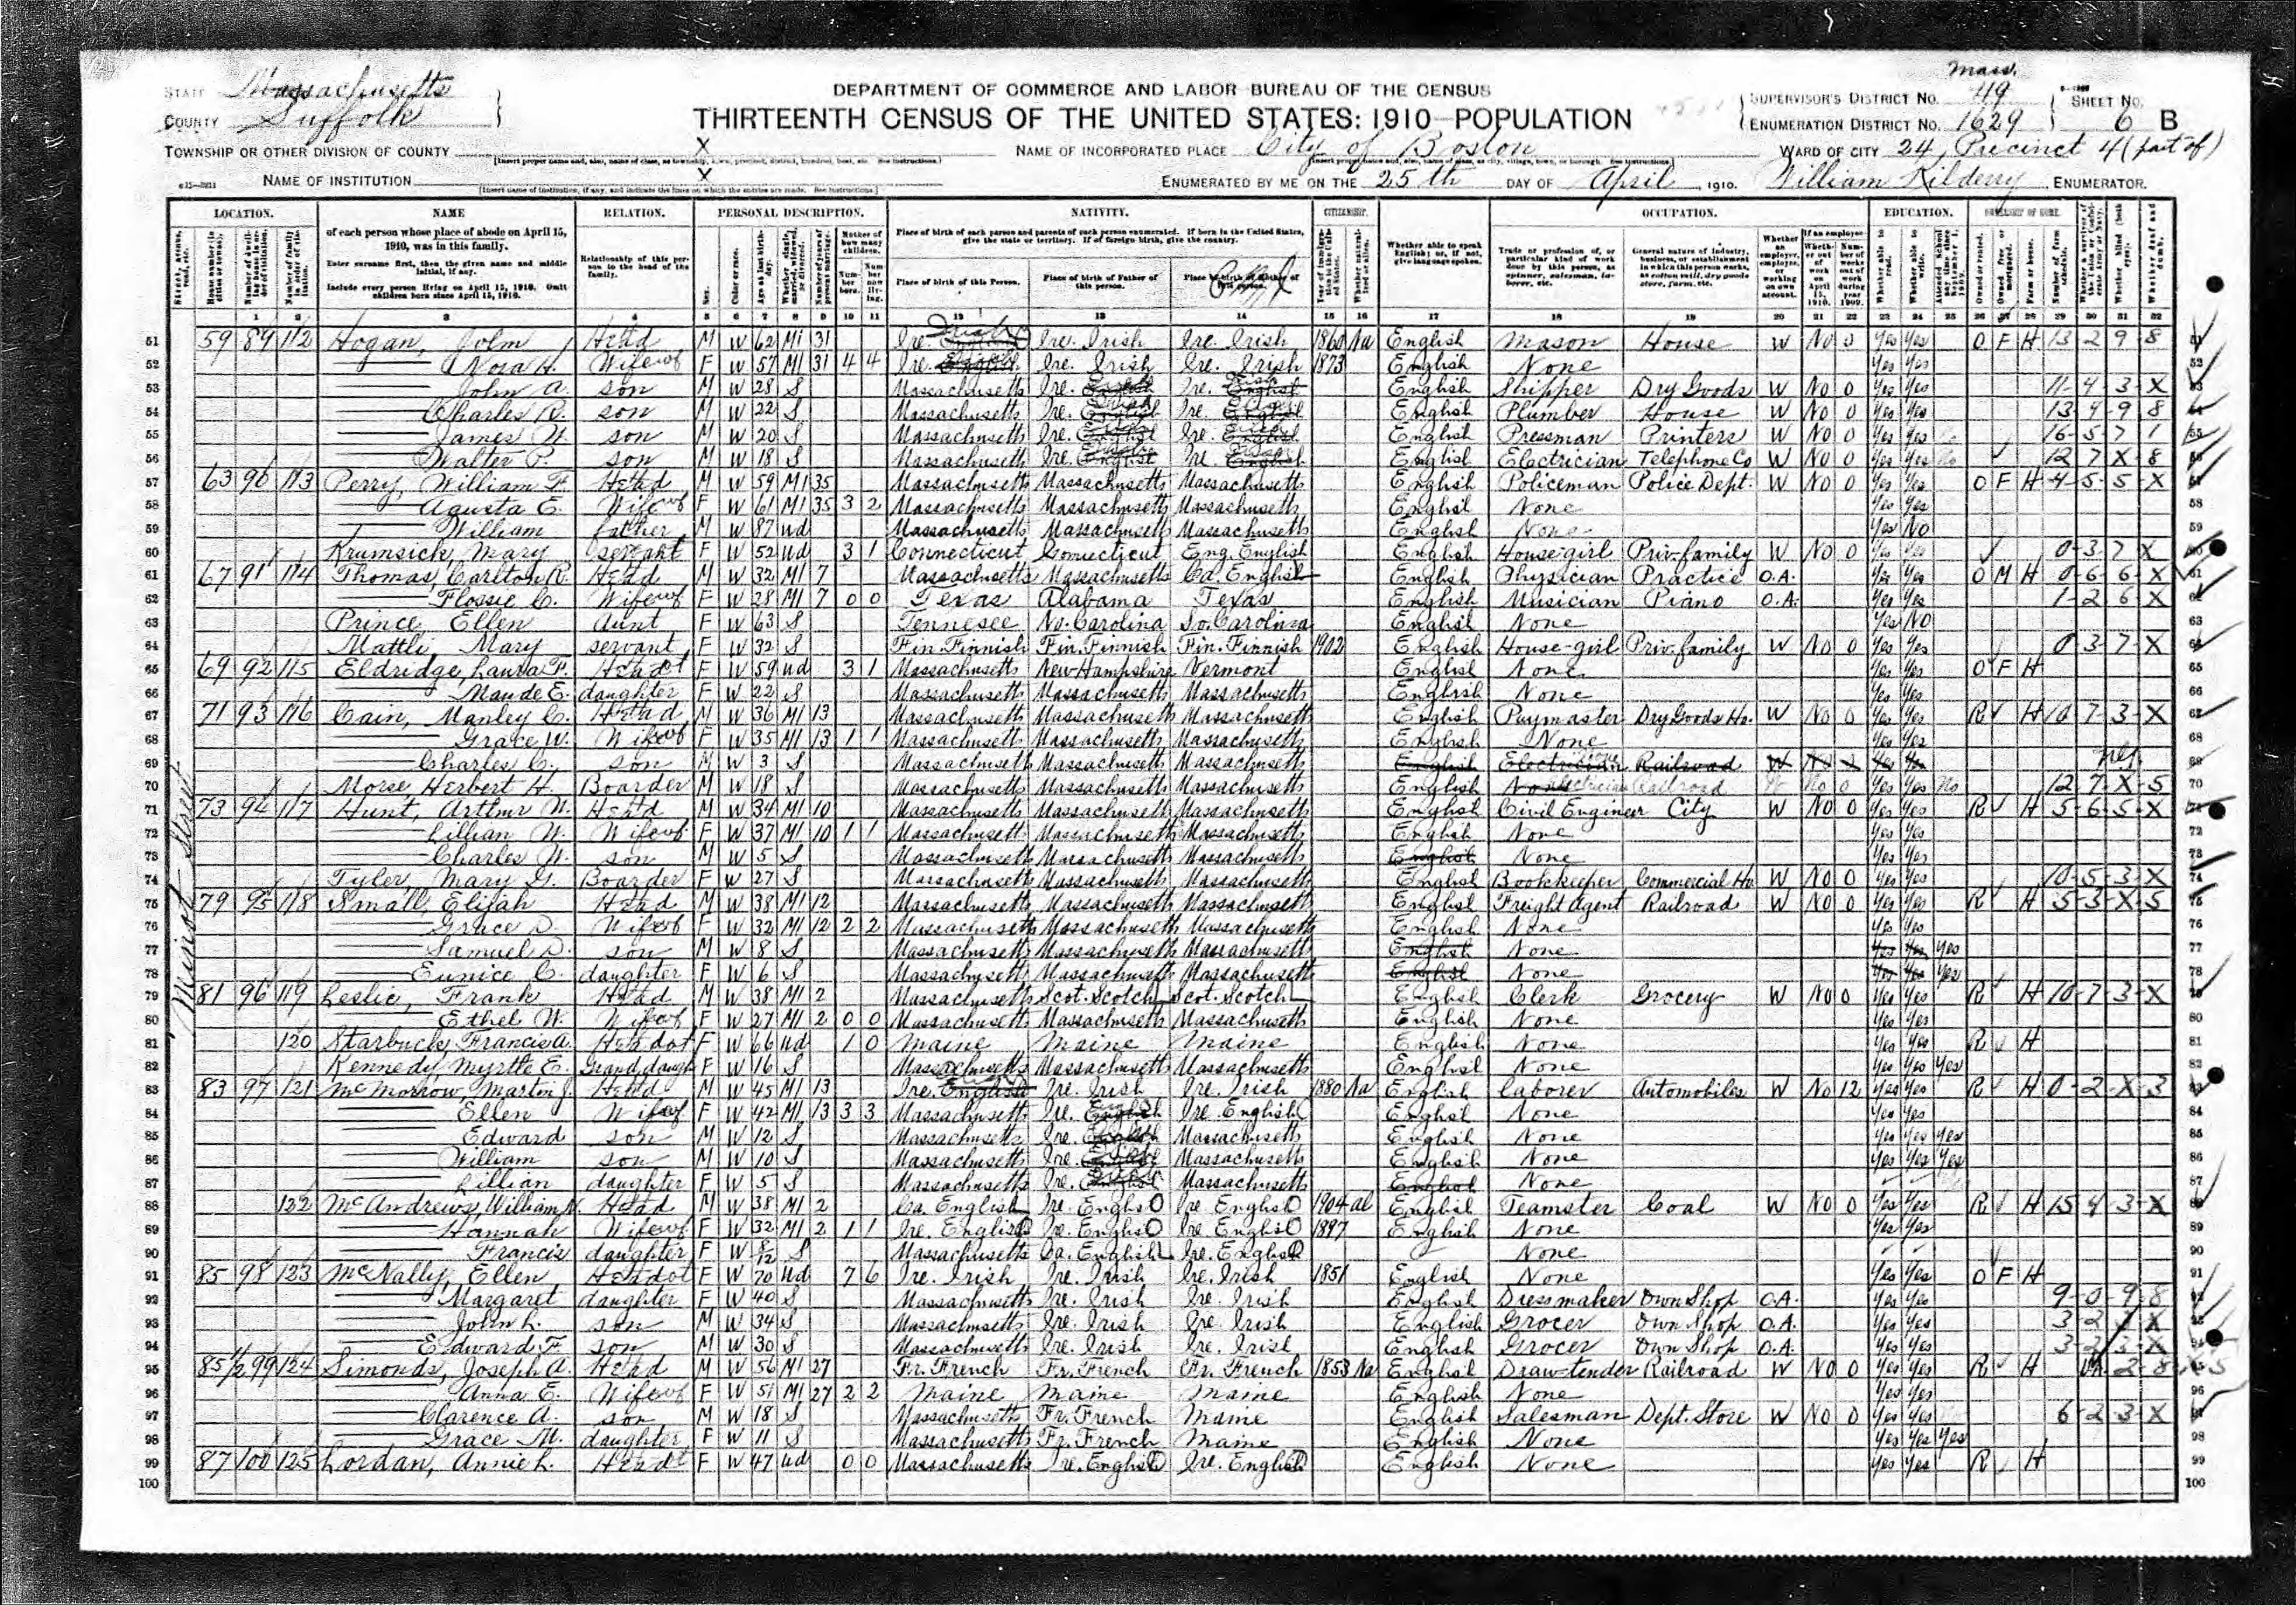 Mass.
STATE Massachusetts
COUNTY Suffolk
DEPARTMENT OF COMMERCE AND LABOR-BUREAU OF THE CENSUS
THIRTEENTH CENSUS OF THE UNITED STATES: 1910-POPULATION
SUPERVISOR'S DISTRICT No. 49
ENUMERATION DISTRICT No. 1629
SHEET No. 6 B
TOWNSHIP OR OTHER DIVISION OF COUNTY X
NAME OF INCORPORATED PLACE City of Boston
WARD OF CITY 24, Precinct 4 (part of)
NAME OF INSTITUTION X
ENUMERATED BY ME ON THE 25th DAY OF April, 1910. William Kilderry, ENUMERATOR.
LOCATION. NAME RELATION. PERSONAL DESCRIPTION. NATIVITY. CITIZENSHIP. OCCUPATION. EDUCATION. OWNERSHIP OF HOME.
of each person whose place of abode on April 15, 1910, was in this family.
Enter surname first, then the given name and middle initial, if any.
Include every person living on April 15, 1910. Omit children born since April 15, 1910.
Relationship of this person to the head of the family.
Place of birth of each person and parents of each person enumerated. If born in the United States, give the state or territory. If of foreign birth, give the country.
Place of birth of this Person. Place of birth of Father of this person. Place of birth of Mother of this person.
Whether able to speak English; or, if not, give language spoken.
Minot Street
51 59 89 112 Hogan, John Head M W 62 M1 31 Ire. Irish Ire. Irish Ire. Irish 1860 Na English Mason House W No 0 Yes Yes O F H 13-2-9-8
52 Nora H. Wife F W 57 M1 31 4 4 Ire. English Ire. Irish Ire. Irish 1873 English None Yes Yes
53 John A. son M W 28 S Massachusetts Ire. English Ire. English English Shipper Dry Goods W No 0 Yes Yes 11-4-3-X
54 Charles R. son M W 22 S Massachusetts Ire. English Ire. English English Plumber House W No 0 Yes Yes 13-4-9-8
55 James W. son M W 20 S Massachusetts Ire. English Ire. English English Pressman Printers W No 0 Yes Yes 16-5-7-1
56 Walter P. son M W 18 S Massachusetts Ire. English Ire. English English Electrician Telephone Co W No 0 Yes Yes No 12-7-X-8
57 63 90 113 Perry, William F. Head M W 59 M1 35 Massachusetts Massachusetts Massachusetts English Policeman Police Dept. W No 0 Yes Yes O F H 4-5-5-X
58 Agusta E. Wife F W 61 M1 35 3 2 Massachusetts Massachusetts Massachusetts English None Yes Yes
59 William father M W 87 Wd Massachusetts Massachusetts Massachusetts English None Yes No
60 Krumsick, Mary servant F W 52 Wd 3 1 Connecticut Connecticut Eng. English English House girl Priv. family W No 0 Yes Yes 0-3-7-X
61 67 91 114 Thomas, Carlton R. Head M W 32 M1 7 Massachusetts Massachusetts Ca. English English Physician Practice O.A. Yes Yes O M H 0-6-6-X
62 Flossie C. Wife F W 28 M1 7 0 0 Texas Alabama Texas English Musician Piano O.A. Yes Yes 1-2-6-X
63 Prince, Ellen Aunt F W 63 S Tennesee No. Carolina So. Carolina English None Yes No
64 Mattli, Mary servant F W 32 S Fin. Finnish Fin. Finnish Fin. Finnish 1902 English House-girl Priv. family W No 0 Yes Yes 0-3-7-X
65 69 92 115 Eldridge, Laura F. Head F W 59 Wd 3 1 Massachusetts New Hampshire Vermont English None Yes Yes O F H
66 Maude E. daughter F W 22 S Massachusetts Massachusetts Massachusetts English None Yes Yes
67 71 93 116 Cain, Manley C. Head M W 36 M1 13 Massachusetts Massachusetts Massachusetts English Paymaster Dry Goods Ho. W No 0 Yes Yes R H 10-7-3-X
68 Grace W. Wife F W 35 M1 13 1 1 Massachusetts Massachusetts Massachusetts English None Yes Yes
69 Charles C. son M W 3 S Massachusetts Massachusetts Massachusetts English Electrician Railroad W
70 Morse, Herbert H. Boarder M W 18 S Massachusetts Massachusetts Massachusetts English None Electrician Railroad W No 0 Yes Yes No 12-7-X-5
71 73 94 117 Hunt, Arthur W. Head M W 34 M1 10 Massachusetts Massachusetts Massachusetts English Civil Engineer City W No 0 Yes Yes R H 5-6-5-X
72 Lillian W. Wife F W 37 M1 10 1 1 Massachusetts Massachusetts Massachusetts English None Yes Yes
73 Charles W. son M W 5 S Massachusetts Massachusetts Massachusetts English None Yes Yes
74 Tyler, Mary G. Boarder F W 27 S Massachusetts Massachusetts Massachusetts English Bookkeeper Commercial Ho W No 0 Yes Yes 10-5-3-X
75 79 95 118 Small, Elijah Head M W 38 M1 12 Massachusetts Massachusetts Massachusetts English Freight agent Railroad W No 0 Yes Yes R H 5-3-X-5
76 Grace D. Wife F W 32 M1 12 2 2 Massachusetts Massachusetts Massachusetts English None Yes Yes
77 Samuel D. son M W 8 S Massachusetts Massachusetts Massachusetts English None Yes Yes Yes
78 Eunice C. daughter F W 6 S Massachusetts Massachusetts Massachusetts English None Yes Yes Yes
79 81 96 119 Leslie, Frank Head M W 38 M1 2 Massachusetts Scot. Scotch Scot. Scotch English Clerk Grocery W No 0 Yes Yes R H 10-7-3-X
80 Ethel W. Wife F W 27 M1 2 0 0 Massachusetts Massachusetts Massachusetts English None Yes Yes
81 120 Starbuck, Francis A. Head F W 66 Wd 1 0 Maine Maine Maine English None Yes Yes R H
82 Kennedy, Myrtle E. Grand daugh F W 16 S Massachusetts Massachusetts Massachusetts English None Yes Yes Yes
83 83 97 121 McMorrow, Martin J. Head M W 45 M1 13 Ire. English Ire. Irish Ire. Irish 1880 Na English Laborer Automobiles W No 12 Yes Yes R H 0-2-X-3
84 Ellen Wife F W 42 M1 13 3 3 Massachusetts Ire. English Ire. English English None Yes Yes
85 Edward son M W 12 S Massachusetts Ire. English Massachusetts English None Yes Yes Yes
86 William son M W 10 S Massachusetts Ire. English Massachusetts English None Yes Yes Yes
87 Lillian daughter F W 5 S Massachusetts Ire. English Massachusetts English None
88 122 McAndrews, William N. Head M W 38 M1 2 Ca. English Ire. English Ire. English 1904 Al English Teamster Coal W No 0 Yes Yes R H 15-4-3-X
89 Hannah Wife F W 32 M1 2 1 1 Ire. English Ire. English Ire. English 1897 English None Yes Yes
90 Francis daughter F W 8/12 S Massachusetts Ca. English Ire. English None
91 85 98 123 McNally, Ellen Head F W 70 Wd 7 6 Ire. Irish Ire. Irish Ire. Irish 1851 English None Yes Yes O F H
92 Margaret daughter F W 40 S Massachusetts Ire. Irish Ire. Irish English Dressmaker Own Shop O.A. Yes Yes 9-0-9-8
93 John L. son M W 34 S Massachusetts Ire. Irish Ire. Irish English Grocer Own Shop O.A. Yes Yes
94 Edward F. son M W 30 S Massachusetts Ire. Irish Ire. Irish English Grocer Own Shop O.A. Yes Yes
95 85 1/2 99 124 Simonds, Joseph A. Head M W 56 M1 27 Fr. French Fr. French Fr. French 1853 Na English Draw-tender Railroad W No 0 Yes Yes R H
96 Anna E. Wife F W 51 M1 27 2 2 Maine Maine Maine English None Yes Yes
97 Clarence A. son M W 18 S Massachusetts Fr. French Maine English Salesman Dept. Store W No 0 Yes Yes 6-2-3-X
98 Grace M. daughter F W 11 S Massachusetts Fr. French Maine English None Yes Yes Yes
99 87 100 125 Lordan, Annie L. Head F W 47 Wd 0 0 Massachusetts Ire. English Ire. English English None Yes Yes R H
100